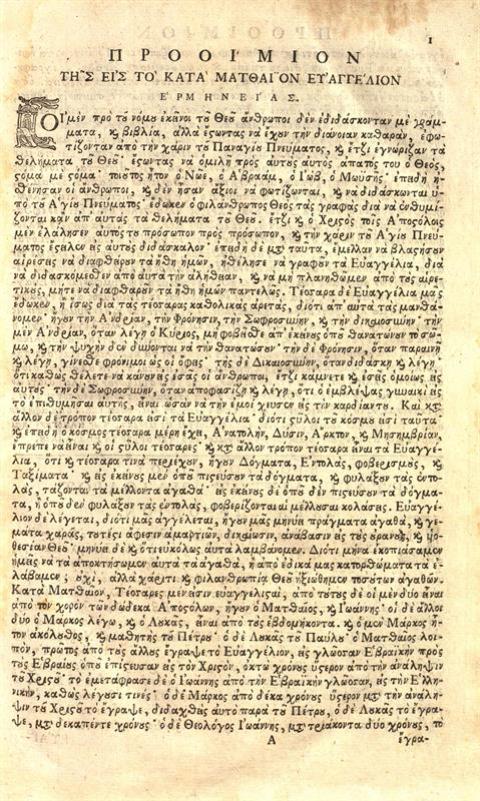 1
ΠΡΟΟΙ´ΜΙΟΝ
ΤΗ͂Σ ΕΙ᾿Σ ΤΟ` ΚΑΤΑ` ΜΑΤΘΑΙ͂ΟΝ ΕΥ᾿ΑΓΓΕ´ΛΙΟΝ
Ε῾ΡΜΗΝΕΙ´ΑΣ.
ΟΙ῾ μὲν πρὸ τοῦ νόμου ἐκεῖνοι τοῦ Θεοῦ ἄνθρωποι δὲν ἐδιδάσκονταν μὲ γράμ-
ματα, καὶ βιβλία, ἀλλὰ ἔσωντας νὰ ἔχουν τὴν διάνοιαν καθαρὰν, ἐφω-
τίζονταν ἀπὸ τὴν χάριν τοῦ Παναγίου Πνεύματος, καὶ ἔτζι ἐγνώριζαν τὰ
θελήματα τοῦ Θεοῦ· ἔσωντας νὰ ὁμιλῇ πρὸς αὐτοὺς αὐτὸς ἀπατός του ὁ Θεὸς,
στόμα μὲ στόμα· τοιοῦτος ἦτον ὁ Νῶε, ὁ Ἀβραὰμ, ὁ Ἰὼβ, ὁ Μωυσῆς· ἐπειδὴ ἠ-
θένησαν οἱ ἄνθρωποι, καὶ δὲν ἦσαν ἄξιοι νὰ φωτίζωνται, καὶ νὰ διδάσκωνται ὑ-
πὸ τοῦ Ἁγίου Πνεύματος· ἔδωκεν ὁ φιλάνθρωπος Θεὸς τὰς γραφὰς διὰ νὰ ἐνθυμί-
ζονται κἂν ἀπ' αὐτὰς τὰ θελήματα τοῦ Θεοῦ. ἔτζι καὶ ὁ Χριστὸς τοῖς Ἀποστόλοις
μὲν ἐλάλησεν αὐτὸς του πρόσωπον πρὸς πρόσωπον, καὶ τὴν χάριν τοῦ Ἁγίου Πνεύ-
ματος ἔστειλεν εἰς αὐτοὺς διδάσκαλον· ἐπειδὴ δὲ μετὰ ταῦτα, ἔμελλαν νὰ βλαστήσουν
αἱρέσεις νὰ διαφθείρουν τὰ ἤθη ἡμῶν, ἠθέλησε νὰ γραφοῦν τὰ Εὐαγγέλια, διὰ
νὰ διδασκόμεθεν ἀπὸ αὐτὰ τὴν ἀλήθειαν, καὶ νὰ μὴ πλανηθῶμεν ἀπὸ τὰς αἱρε-
τικοὺς, μήτε νὰ διαφθαροῦν τὰ ἤθη ἡμῶν παντελῶς. Τέσσαρα δὲ Εὐαγγέλια μᾶς
ἔδωκεν, ἢ ἴσως διὰ τὰς τέσσαρας καθολικὰς ἀρετὰς, διότι ἀπ' αὐτὰ τὰς μανθά-
νομεν· ἤγουν τὴν Ἀνδρείαν, τὴν Φρόνησιν, τὴν Σωφροσύνην, καὶ τὴν δικαιοσύνην· τὴν
μὲν Ἀνδρείαν, ὅταν λέγῃ ὁ Κύριος, μὴ φοβῆσθε ἀπ' ἐκείνους ὁποῦ θανατώνουν τὸ σῶ-
μα, καὶ τὴν ψυχὴν δὲν δύνωνται νὰ τὴν θανατώσουν· τὴν δὲ φρόνησιν, ὅταν παραινῇ
καὶ λέγῃ, γίνεσθε φρόνιμοι ὡς οἱ ὄφεις· τῆς δὲ Δικαιοσύνην, ὅταν διδάσκῃ καὶ λέγῃ
ὅτι καθὼς θέλετε νὰ κάνουν εἰς ἐσᾶς οἱ ἄνθρωποι, ἔτζι κάμνετε καὶ ἐσεῖς ὁμοίως εἰς
αὐτούς· τὴν δὲ Σωφροσύνην, ὅταν ἀποφασίζῃ καὶ λέγῃ, ὅτι ὁ ἐμβλέψας γυναικὶ εἰς
τὸ ἐπιθυμῆσαι αὐτῆς, εἶναι ὡσὰν νὰ τὴν ἐμοίχευσεν εἰς τὴν καρδίαν του. Καὶ κατὰ
ἄλλον δὲ τρόπον τέσσαρα εἰσὶ τὰ Εὐαγγέλια· διότι στύλοι τοῦ κόσμου εἰσὶ ταῦτα·
καὶ ἐπειδὴ ὁ κόσμος τέσσαρα μέρη ἔχει, Ἀνατολὴν, Δύσιν, Ἄρκτον, καὶ Μεσημβρίαν,
ἔπρεπε νὰ εἶναι καὶ οἱ στύλοι τέσσαρες· καὶ κατὰ ἄλλον τρόπον τέσσαρα εἶναι τὰ Εὐαγγέ-
λια, ὅτι καὶ τέσσαρα τινὰ περιέχουν, ἤγουν Δόγματα, Ἐντολὰς, φοβερισμοὺς, καὶ
Ταξίματα· καὶ εἰς ἐκείνους μὲν ὁποῦ πιστεύσουν τὰ δόγματα, καὶ φυλάξουν τὰς ἐντο-
λὰς, τάζονται τὰ μέλλοντα ἀγαθά· εἰς ἐκείνους δὲ ὁποῦ δὲν πιστεύσουν τὰ δόγμα-
τα, ἢ ὁποῦ δὲν φυλάξουν τὰς ἐντολὰς, φοβερίζονται αἱ μέλλουσαι κολάσεις. Εὐαγγέ-
λιον δὲ λέγεται, διότι μᾶς ἀγγέλεται, ἤγουν μᾶς μηνύει πράγματα ἀγαθὰ, καὶ γε-
μάτα χαρὰς, τουτέστι ἄφεσιν ἁμαρτιῶν, δικαίωσιν, ἀνάβασιν εἰς τοὺς οὐρανοὺς, καὶ υἱο-
θεσίαν Θεοῦ· μηνύει δὲ καὶ ὅτι εὐκόλως αὐτὰ λαμβάνομεν. Διότι μήνα ἐκοπιάσαμεν
ἡμεῖς νὰ τὰ ἀποκτήσωμεν αὐτὰ τὰ ἀγαθὰ, ἢ ἀπὸ ἐδικά μας κατορθώματα τὰ ἐ-
λάβαμεν; οὐχὶ, ἀλλὰ χάριτι καὶ φιλανθρωπίᾳ Θεοῦ ἠξιώθημεν τοσούτων ἀγαθῶν.
Κατὰ Ματθαῖον, Τέσσαρες μὲν εἰσιν εὐαγγελισταὶ, ἀπὸ τούτους δὲ οἱ μὲν δύο εἶναι
ἀπὸ τὸν χορὸν τῶν δώδεκα Ἀποστόλων, ἤγουν ὁ Ματθαῖος, καὶ Ἰωάννης· οἱ δὲ ἄλλοι
δύο ὁ Μάρκος λέγω, καὶ ὁ Λουκᾶς, εἶναι ἀπὸ τὰς ἑβδομήκοντα. καὶ ὁ μὲν Μάρκος ἦ-
τον ἀκόλουθος, καὶ μαθητὴς τοῦ Πέτρου· ὁ δὲ Λουκᾶς τοῦ Παύλου· ὁ Ματθαῖος λοι-
πὸν, πρῶτος ἀπὸ τοὺς ἄλλους ἔγραψε τὸ Εὐαγγέλιον, εἰς γλῶσσαν Ἑβραϊκὴν πρὸς
τοὺς Ἑβραίους ὁποῦ ἐπίστευσαν εἰς τὸν Χριστὸν, ὀκτὼ χρόνους ὕστερον ἀπὸ τὴν ἀνάληψιν
τοῦ Χριστοῦ· τὸ ἐμετάφρασε δὲ ὁ Ἰωάννης ἀπὸ τὴν Ἑβραϊκὴν γλῶσσαν, εἰς τὴν Ἑλλη-
νικὴν, καθὼς λέγουσι τινές· ὁ δὲ Μάρκος ἀπὸ δέκα χρόνους ὕστερον μετὰ τὴν ἀνάλη-
ψιν τοῦ Χριστοῦ τὸ ἔγραψε, διδαχθεὶς αὐτὸ παρὰ τοῦ Πέτρου, ὁ δὲ Λουκᾶς τὸ ἔγρα-
ψε, μετὰ δεκαπέντε χρόνους· ὁ δὲ Θεολόγος Ἰωάννης, μετὰ τριάκοντα δύο χρόνους, τὸ
A ἔγρα-